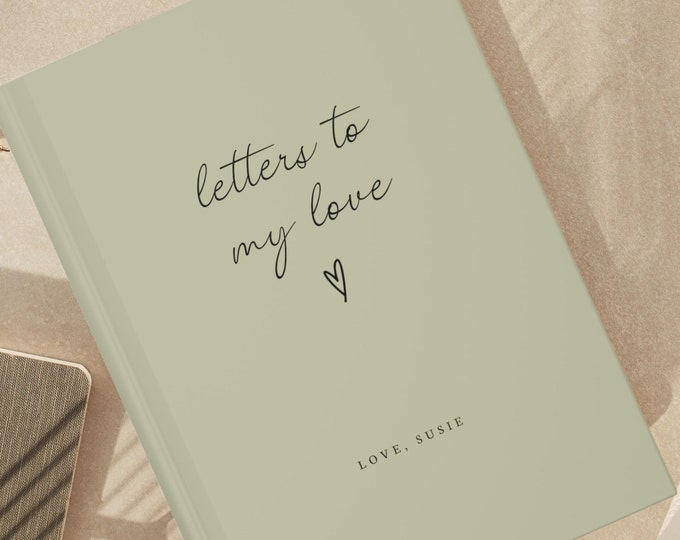 letters to
my love
LOVE, SUSIE